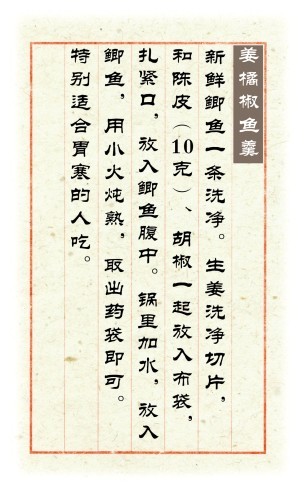 姜橘椒鱼羹
新鲜鲫鱼一条洗净。生姜洗净切片，
和陈皮（10克）、胡椒一起放入布袋，
扎紧口，放入鲫鱼腹中。锅里加水，放入
鲫鱼，用小火炖熟，取出药袋即可。
特别适合胃寒的人吃。